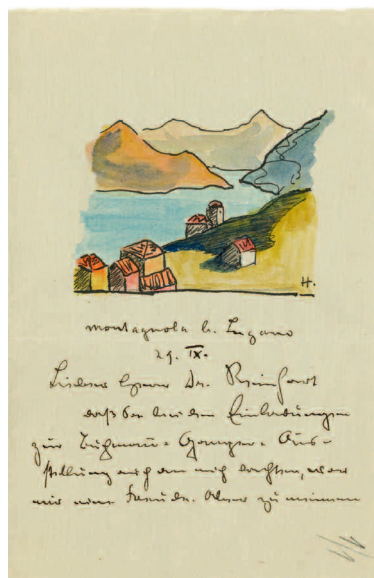 H.
Montagnola b. Lugano
29. IX.
Lieber Herr Dr. Reinhart
daß Sie bei den Einladungen
zur Ausstellung
stellung auch an mich dachten, war
mir eine Freude. Aber zu meinem